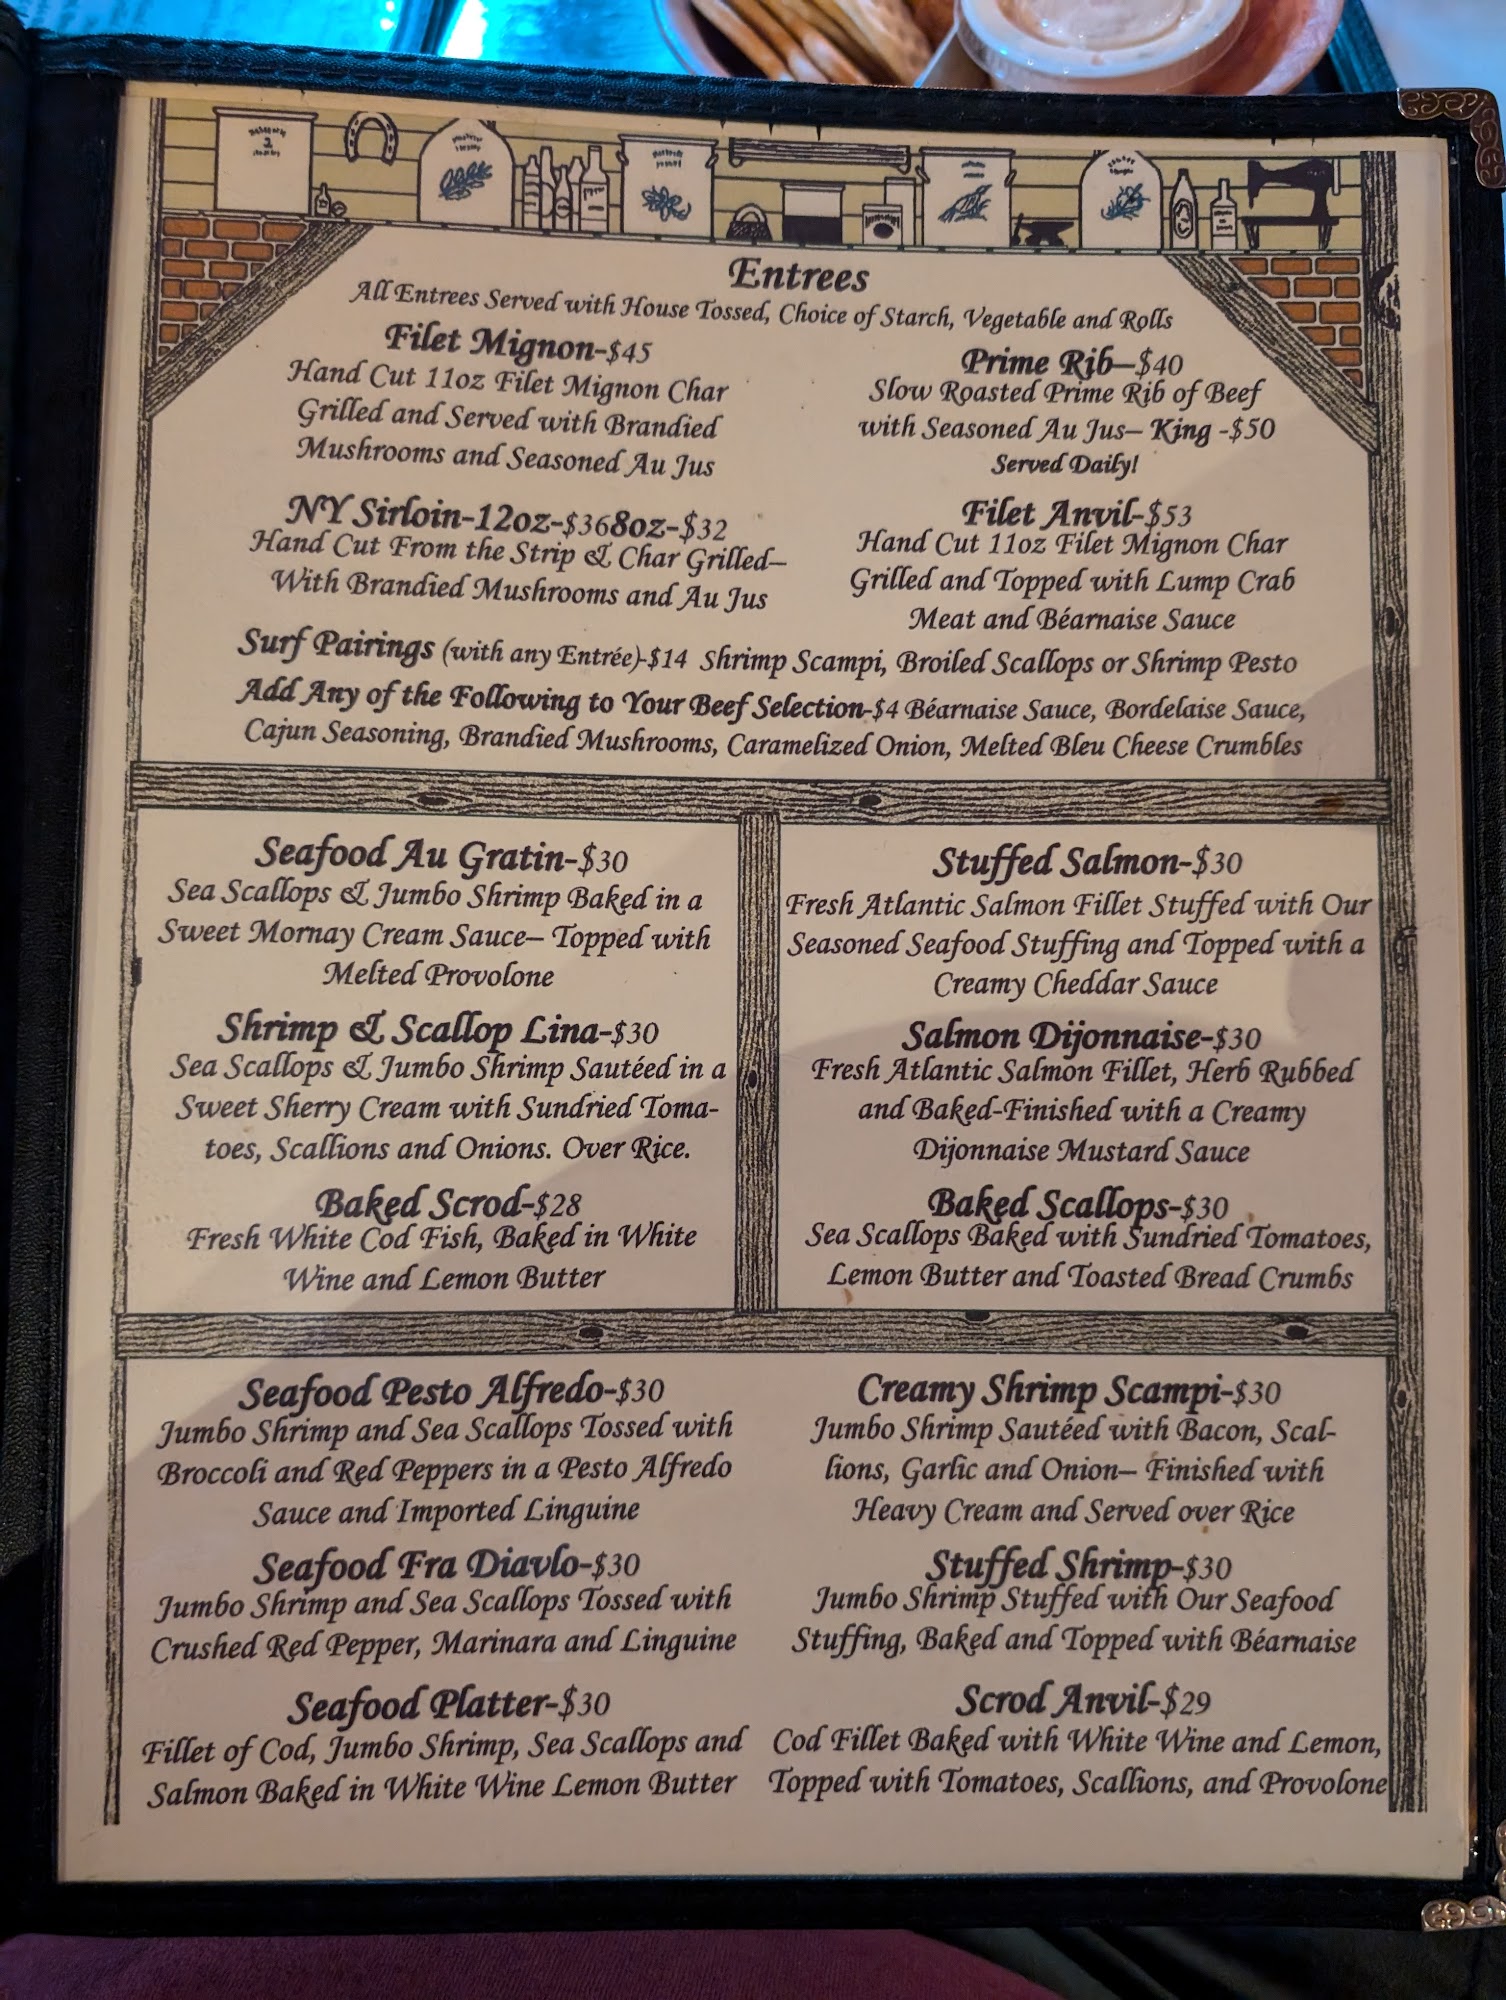 Entrees
All Entrees Served with House Tossed, Choice of Starch, Vegetable and Rolls
Filet Mignon-$45
Hand Cut 11oz Filet Mignon Char
Grilled and Served with Brandied
Mushrooms and Seasoned Au Jus
Prime Rib–$40
Slow Roasted Prime Rib of Beef
with Seasoned Au Jus– King -$50
Served Daily!
NY Sirloin-12oz-$36 8oz-$32
Hand Cut From the Strip & Char Grilled–
With Brandied Mushrooms and Au Jus
Filet Anvil-$53
Hand Cut 11oz Filet Mignon Char
Grilled and Topped with Lump Crab
Meat and Béarnaise Sauce
Surf Pairings (with any Entrée)-$14 Shrimp Scampi, Broiled Scallops or Shrimp Pesto
Add Any of the Following to Your Beef Selection-$4 Béarnaise Sauce, Bordelaise Sauce,
Cajun Seasoning, Brandied Mushrooms, Caramelized Onion, Melted Bleu Cheese Crumbles
Seafood Au Gratin-$30
Sea Scallops & Jumbo Shrimp Baked in a
Sweet Mornay Cream Sauce– Topped with
Melted Provolone
Shrimp & Scallop Lina-$30
Sea Scallops & Jumbo Shrimp Sautéed in a
Sweet Sherry Cream with Sundried Toma-
toes, Scallions and Onions. Over Rice.
Baked Scrod-$28
Fresh White Cod Fish, Baked in White
Wine and Lemon Butter
Stuffed Salmon-$30
Fresh Atlantic Salmon Fillet Stuffed with Our
Seasoned Seafood Stuffing and Topped with a
Creamy Cheddar Sauce
Salmon Dijonnaise-$30
Fresh Atlantic Salmon Fillet, Herb Rubbed
and Baked-Finished with a Creamy
Dijonnaise Mustard Sauce
Baked Scallops-$30
Sea Scallops Baked with Sundried Tomatoes,
Lemon Butter and Toasted Bread Crumbs
Seafood Pesto Alfredo-$30
Jumbo Shrimp and Sea Scallops Tossed with
Broccoli and Red Peppers in a Pesto Alfredo
Sauce and Imported Linguine
Seafood Fra Diavlo-$30
Jumbo Shrimp and Sea Scallops Tossed with
Crushed Red Pepper, Marinara and Linguine
Seafood Platter-$30
Fillet of Cod, Jumbo Shrimp, Sea Scallops and
Salmon Baked in White Wine Lemon Butter
Creamy Shrimp Scampi-$30
Jumbo Shrimp Sautéed with Bacon, Scal-
lions, Garlic and Onion– Finished with
Heavy Cream and Served over Rice
Stuffed Shrimp-$30
Jumbo Shrimp Stuffed with Our Seafood
Stuffing, Baked and Topped with Béarnaise
Scrod Anvil-$29
Cod Fillet Baked with White Wine and Lemon,
Topped with Tomatoes, Scallions, and Provolone